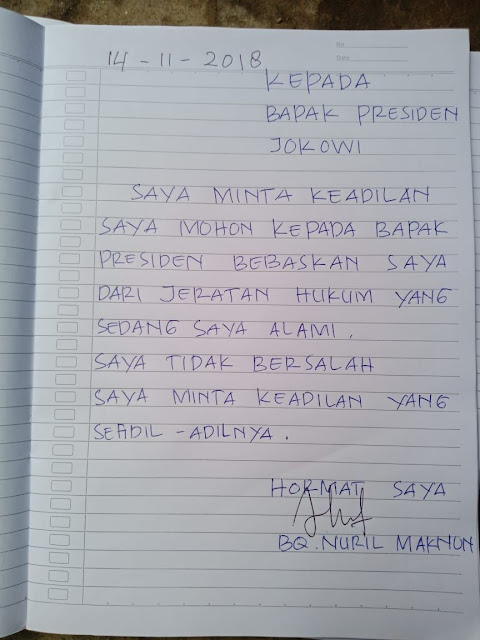 No
Date
14 - 11 - 2018
KEPADA
BAPAK PRESIDEN
JOKOWI
SAYA MINTA KEADILAN
SAYA MOHON KEPADA BAPAK
PRESIDEN BEBASKAN SAYA
DARI JERATAN HUKUM YANG
SEDANG SAYA ALAMI.
SAYA TIDAK BERSALAH
SAYA MINTA KEADILAN YANG
SEADIL - ADILNYA.
HORMAT SAYA
BQ. NURIL MAKNUN